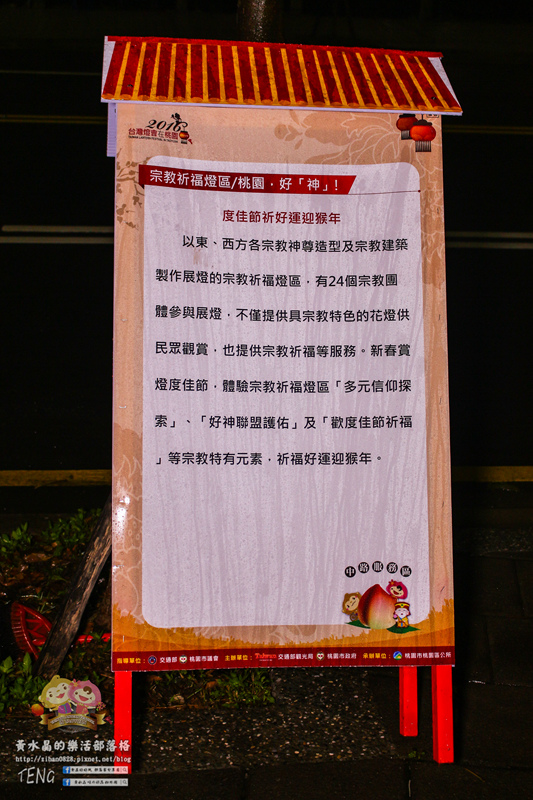 2016
台灣燈會在桃園
宗教祈福燈區/桃園，好「神」!
度佳節祈好運迎猴年
以東、西方各宗教神尊造型及宗教建築
製作展燈的宗教祈福燈區，有24個宗教團
體參與展燈，不僅提供具宗教特色的花燈供
民眾觀賞，也提供宗教祈福等服務。新春賞
燈度佳節，體驗宗教祈福燈區「多元信仰探
索」、「好神聯盟護佑」及「歡度佳節祈福
」等宗教特有元素，祈福好運迎猴年。
中路服務區
指導單位： 交通部 桃園市議會 主辦單位： Taiwan 交通部觀光局 桃園市政府 承辦單位： 桃園市桃園區公所
黃水晶的樂活部落格
http://sihan0828.pixnet.net/blog
TENG